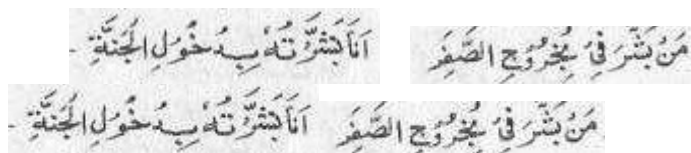 مَنْ بَشَّرَ فِىْ بِخُرُوْجِ الصَّفَرِ اَنَا بَشَّرْتُهٗ بِدُخُوْلِ الْجَنَّةِ -
مَنْ بَشَّرَ فِىْ بِخُرُوْجِ الصَّفَرِ اَنَا بَشَّرْتُهٗ بِدُخُوْلِ الْجَنَّةِ -